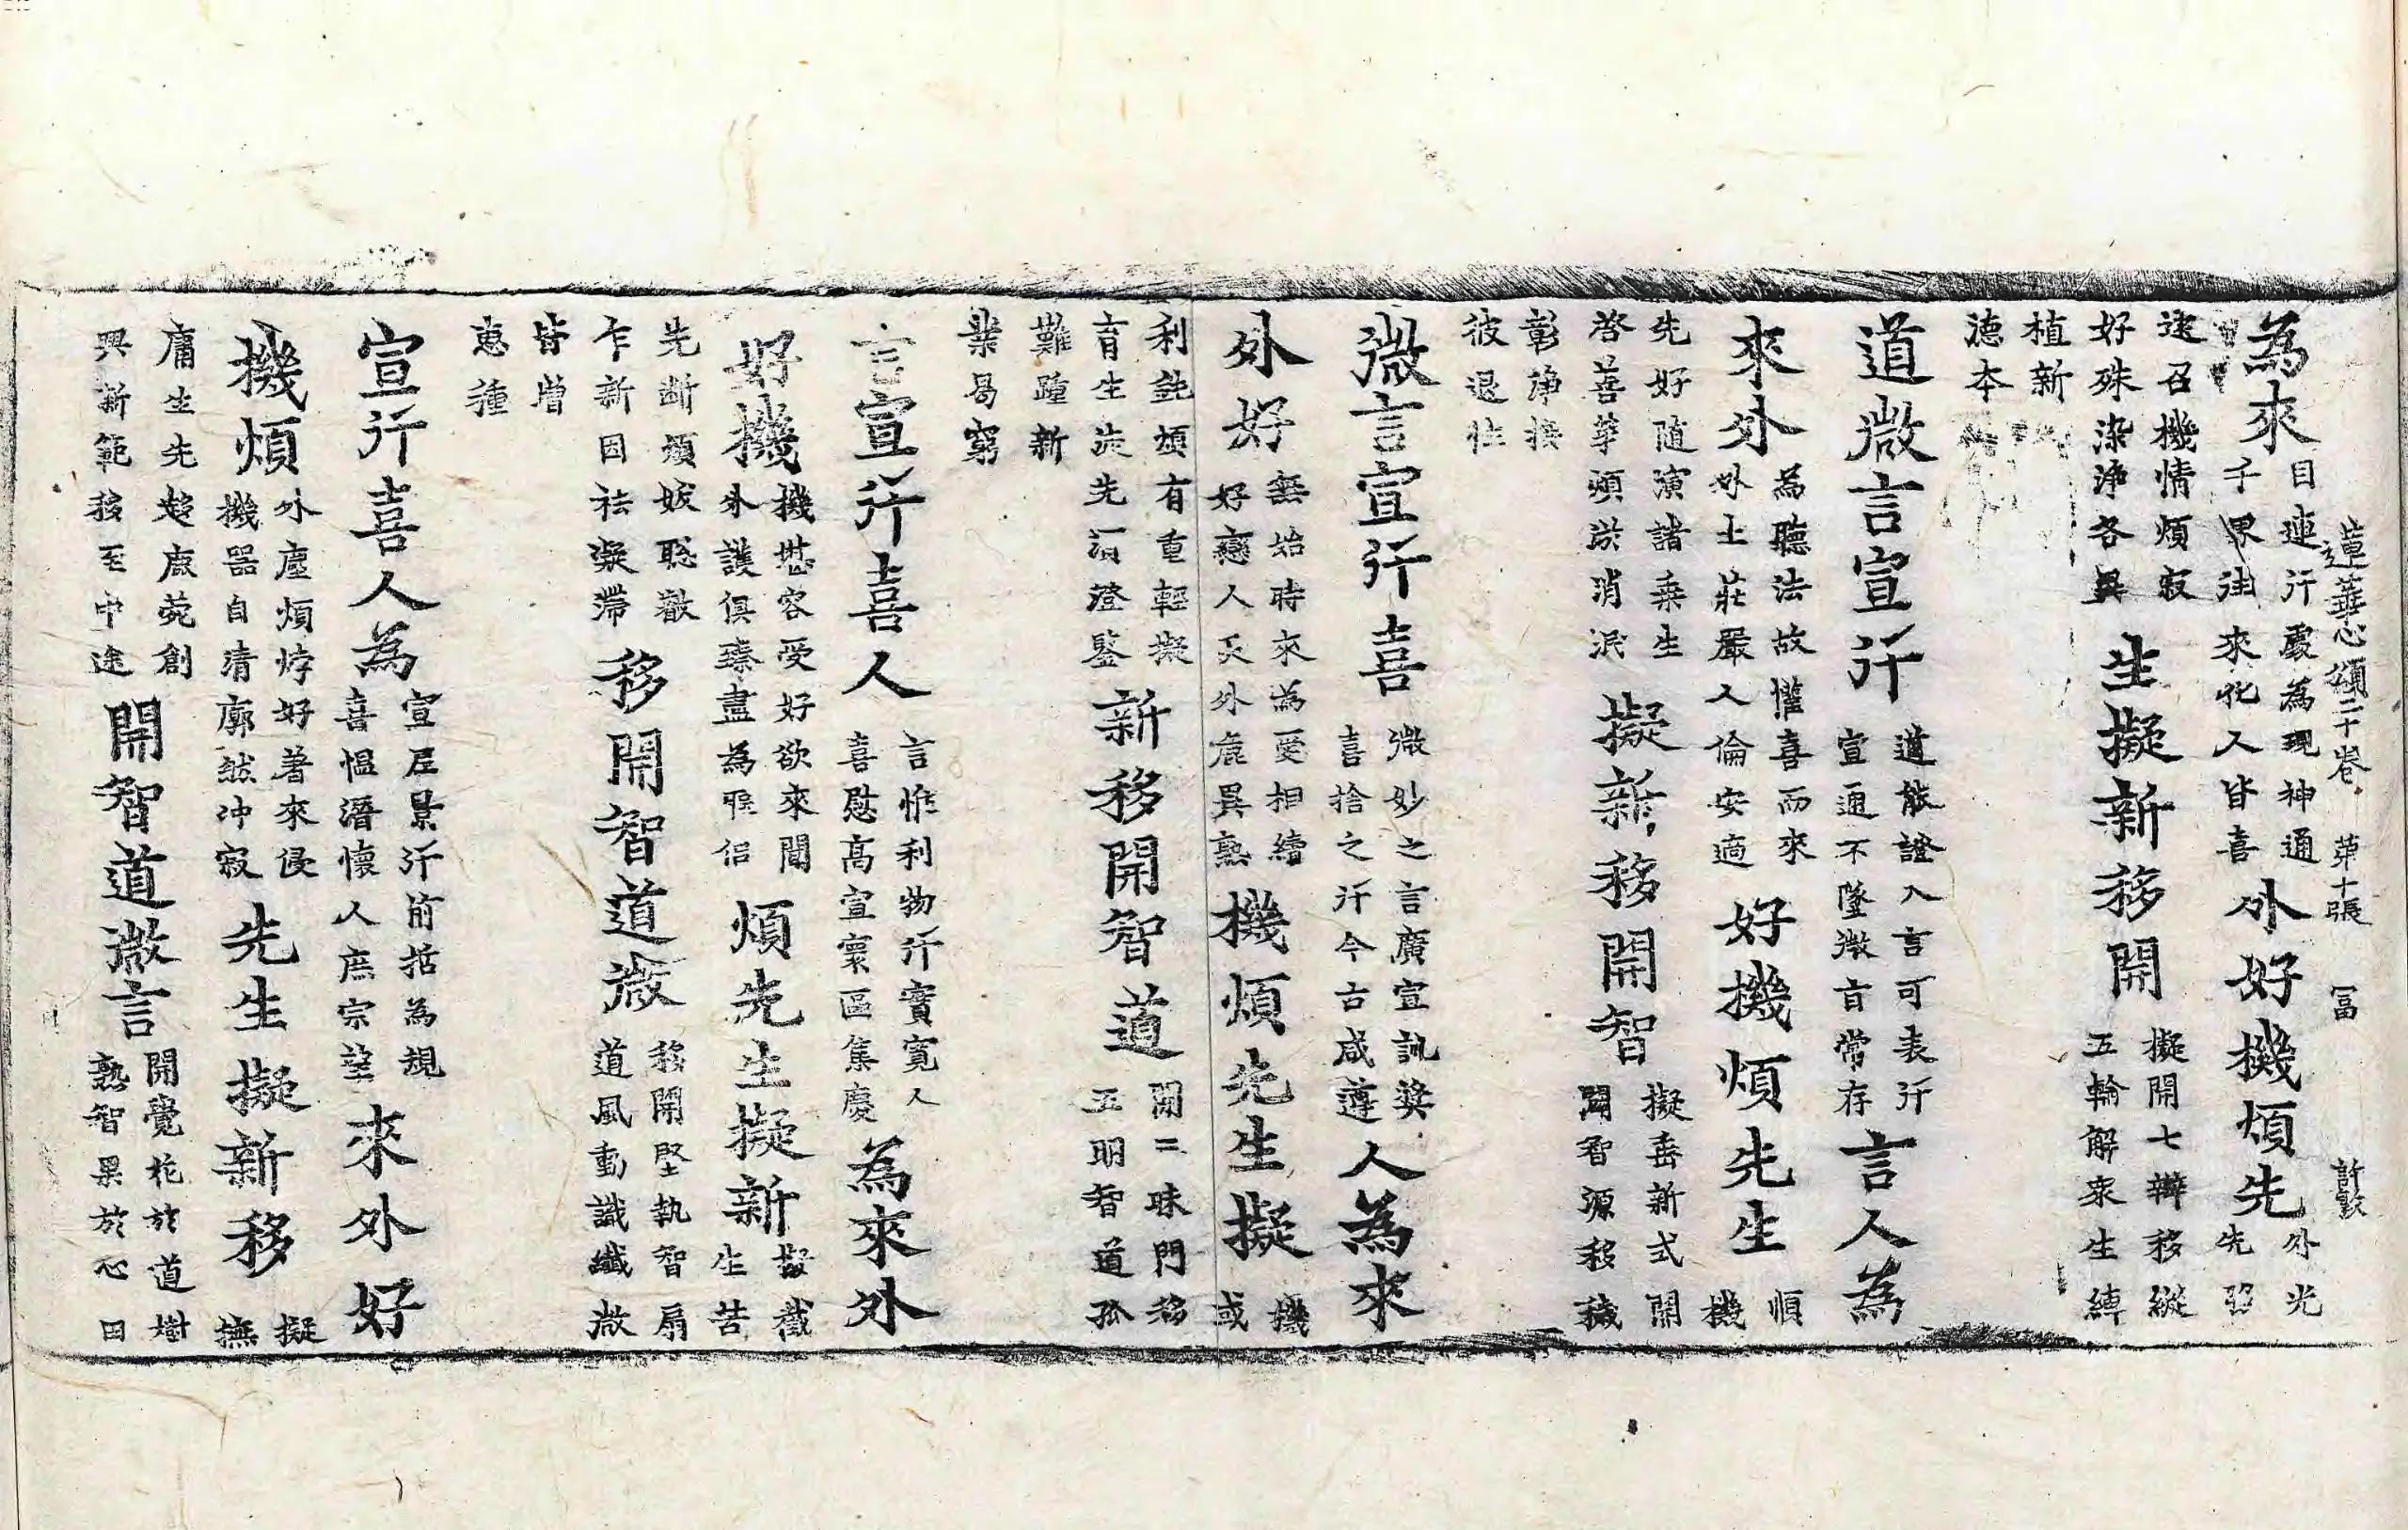 蓮華心頌二十卷 第十張 冨 許歡
為來 目連行處為現神通 千界往來化人皆喜 外好機煩先 外光 先召
逐召機情煩寂 好殊染淨各異 生擬新移開 擬開七辯移縱 五輪解衆生縛
植新
德本
道微言宣行 道散證入言可表行 宣通不墜微言常存 言人為
來外 為聽法故懽喜而來 外土莊嚴人倫安適 好機煩先生 煩 機
先好隨演諸乘生 啓善革煩淤消泯 擬新移開智 擬垂新式開 開智源移穢
彰淨揆
彼退性
微言宣行喜 微妙之言廣宣訓獎 喜捨之行今古咸遵 人為來
外好 無始時來為愛相續 好戀人天外麁異熟 機煩先生擬 機 或
利鈍煩有重輕擬 育生先須澄鑒 新移開智道 開二昧門移 五明智道孤
難蹱新
業曷窮
言宣行喜人 言惟利物行實寬人 喜慰高宣寰區集慶 為來外
好機 機堪容受好欲來聞 外護俱臻盡為羣侶 煩先生擬新 擬截 生苦
先斷煩嫉聡叡 乍新因祛凝滯 移開智道微 移開堅執智扇 道風動識纎微
皆增
惠種
宣行喜人為 宣尼景行前括為規 喜愠潛懷人庶宗望 來外好
機煩 外塵煩悖好著來侵 機器自清廓然冲寂 先生擬新移 擬 撫
庸生先趍鹿菀創 興新範移至中途 開智道微言 開覺花於道樹 熟智果於心田